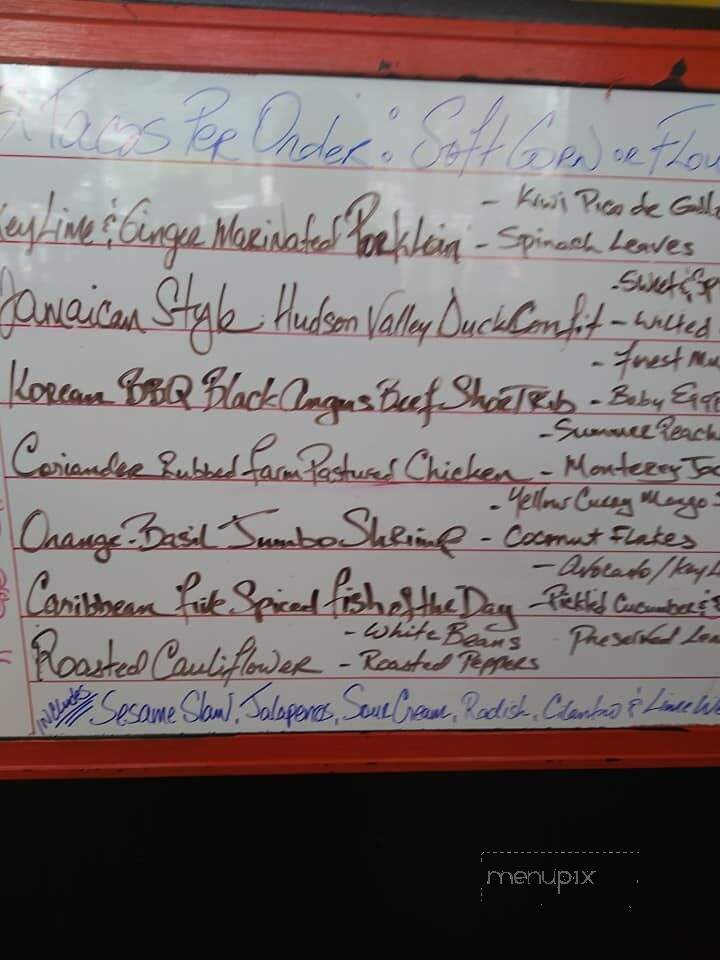 Tacos Per Order: Soft Corn or Flou
- Kiwi Pico de Gall
Key Lime & Ginger Marinated Pork Loin - Spinach Leaves
- Sweet & Sp
Jamaican Style Hudson Valley Duck Confit - Wilted
- Forest Mu
Korean BBQ Black Angus Beef Short Rib - Baby Egg
- Summer Peach
Coriander Rubbed Farm Pastured Chicken - Monterey Jac
- Yellow Curry Mango -
Orange-Basil Jumbo Shrimp - Coconut Flakes
- Avocado/Key L
Caribbean Fire Spiced Fish of the Day - Pickled Cucumber &
- White Beans Preserved Lem
Roasted Cauliflower - Roasted Peppers
Includes Sesame Slaw, Jalapenos, Sour Cream, Radish, Cilantro & Lime We
menupix